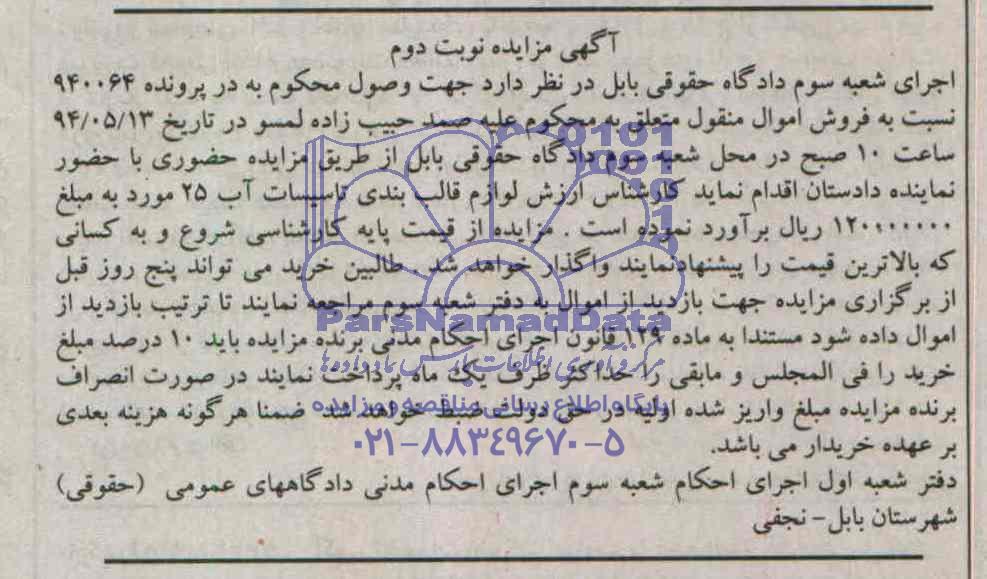 آگهی مزایده نوبت دوم
اجرای شعبه سوم دادگاه حقوقی بابل در نظر دارد جهت وصول محکوم به در پرونده ۹۴۰۰۶۴
نسبت به فروش اموال منقول متعلق به محکوم علیه صمد حبیب زاده لمسو در تاریخ ۹۴/۰۵/۱۳
ساعت ۱۰ صبح در محل شعبه سوم دادگاه حقوقی بابل از طریق مزایده حضوری با حضور
نماینده دادستان اقدام نماید کارشناس ارزش لوازم قالب بندی تاسیسات آب ۲۵ مورد به مبلغ
۱۲۰۰۰۰۰۰۰ ریال برآورد نموده است . مزایده از قیمت پایه کارشناسی شروع و به کسانی
که بالاترین قیمت را پیشنهادنمایند واگذار خواهد شد . طالبین خرید می تواند پنج روز قبل
از برگزاری مزایده جهت بازدید از اموال به دفتر شعبه سوم مراجعه نمایند تا ترتیب بازدید از
اموال داده شود مستندا به ماده ۱۲۹ قانون اجرای احکام مدنی برنده مزایده باید ۱۰ درصد مبلغ
خرید را فی المجلس و مابقی را حداکثر ظرف یک ماه پرداخت نمایند در صورت انصراف
برنده مزایده مبلغ واریز شده اولیه در حق دولت ضبط خواهد شد ضمنا هر گونه هزینه بعدی
بر عهده خریدار می باشد.
دفتر شعبه اول اجرای احکام شعبه سوم اجرای احکام مدنی دادگاههای عمومی (حقوقی)
شهرستان بابل- نجفی
ParsNamadData
مرکز فرآوری اطلاعات پارس نماد داده ها
پایگاه اطلاع رسانی مناقصه و مزایده
۰۲۱-۸۸۳۴۹۶۷۰-۵